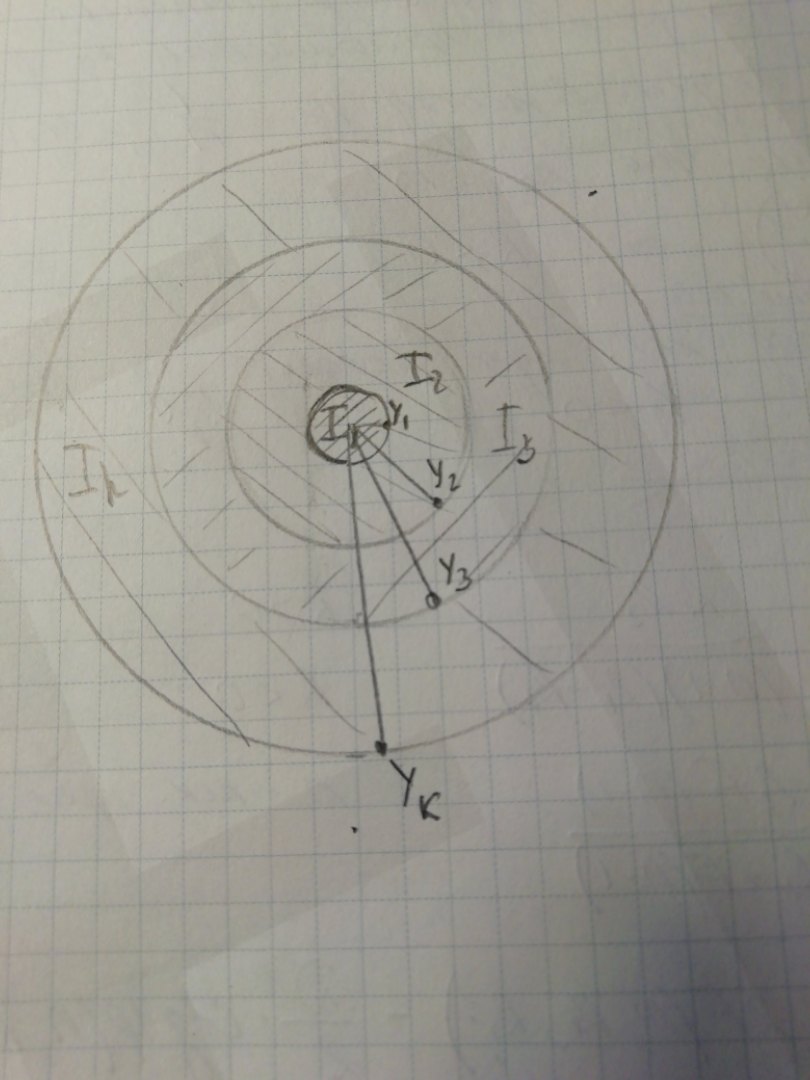 I₂
I₁ Y₁
I₃
Iₖ Y₂
Y₃
Yₖ